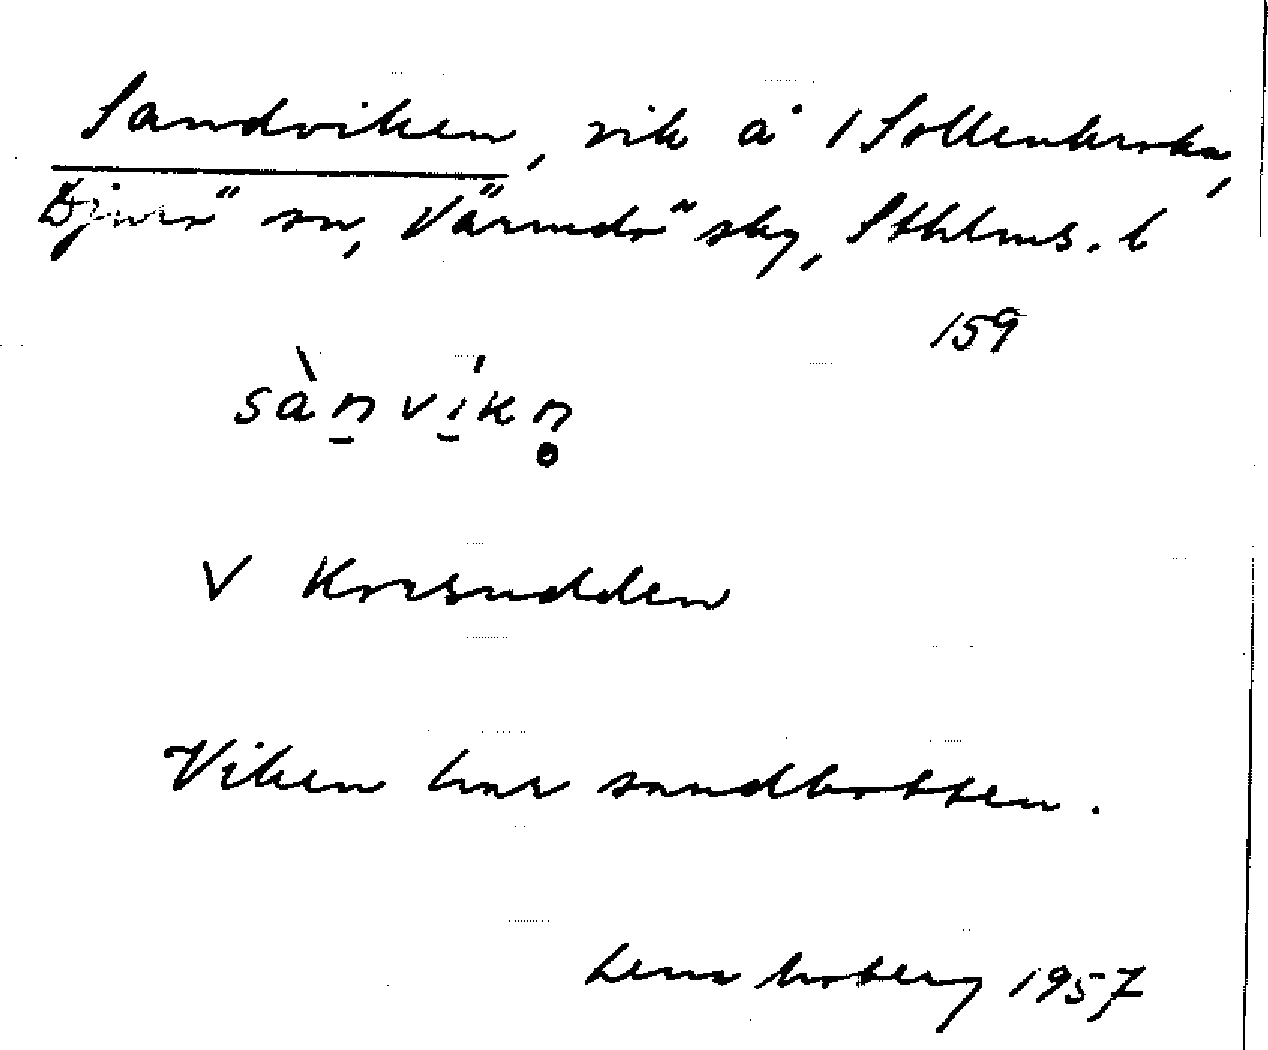 Sandviken, vik å 1 Sollenkroka,
Djurö sn, Värmdö skg, Sthlms. l
159
sànvíkn̥
V Korsudden
Viken har sandbotten.
1957